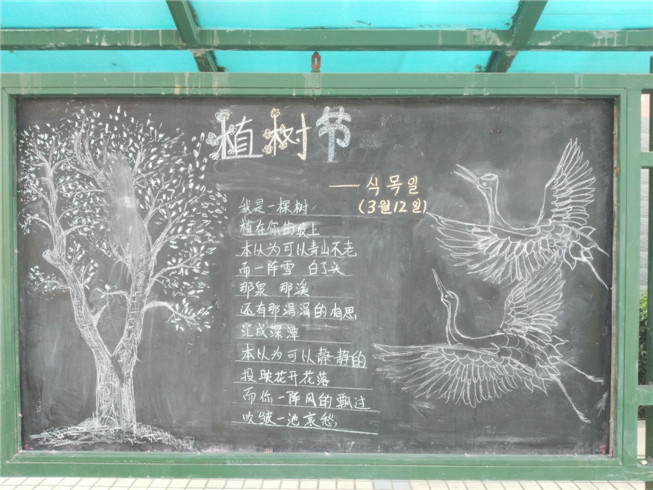 植树节
——食木日
(3月12日)
我是一棵树
植在你的坡上
本以为可以青山不老
而一阵雪 白了头
那泉 那溪
还有那涓涓的相思
汇成深潭
本以为可以静静的
投映花开花落
而你一阵风的飘过
吹皱一池哀愁